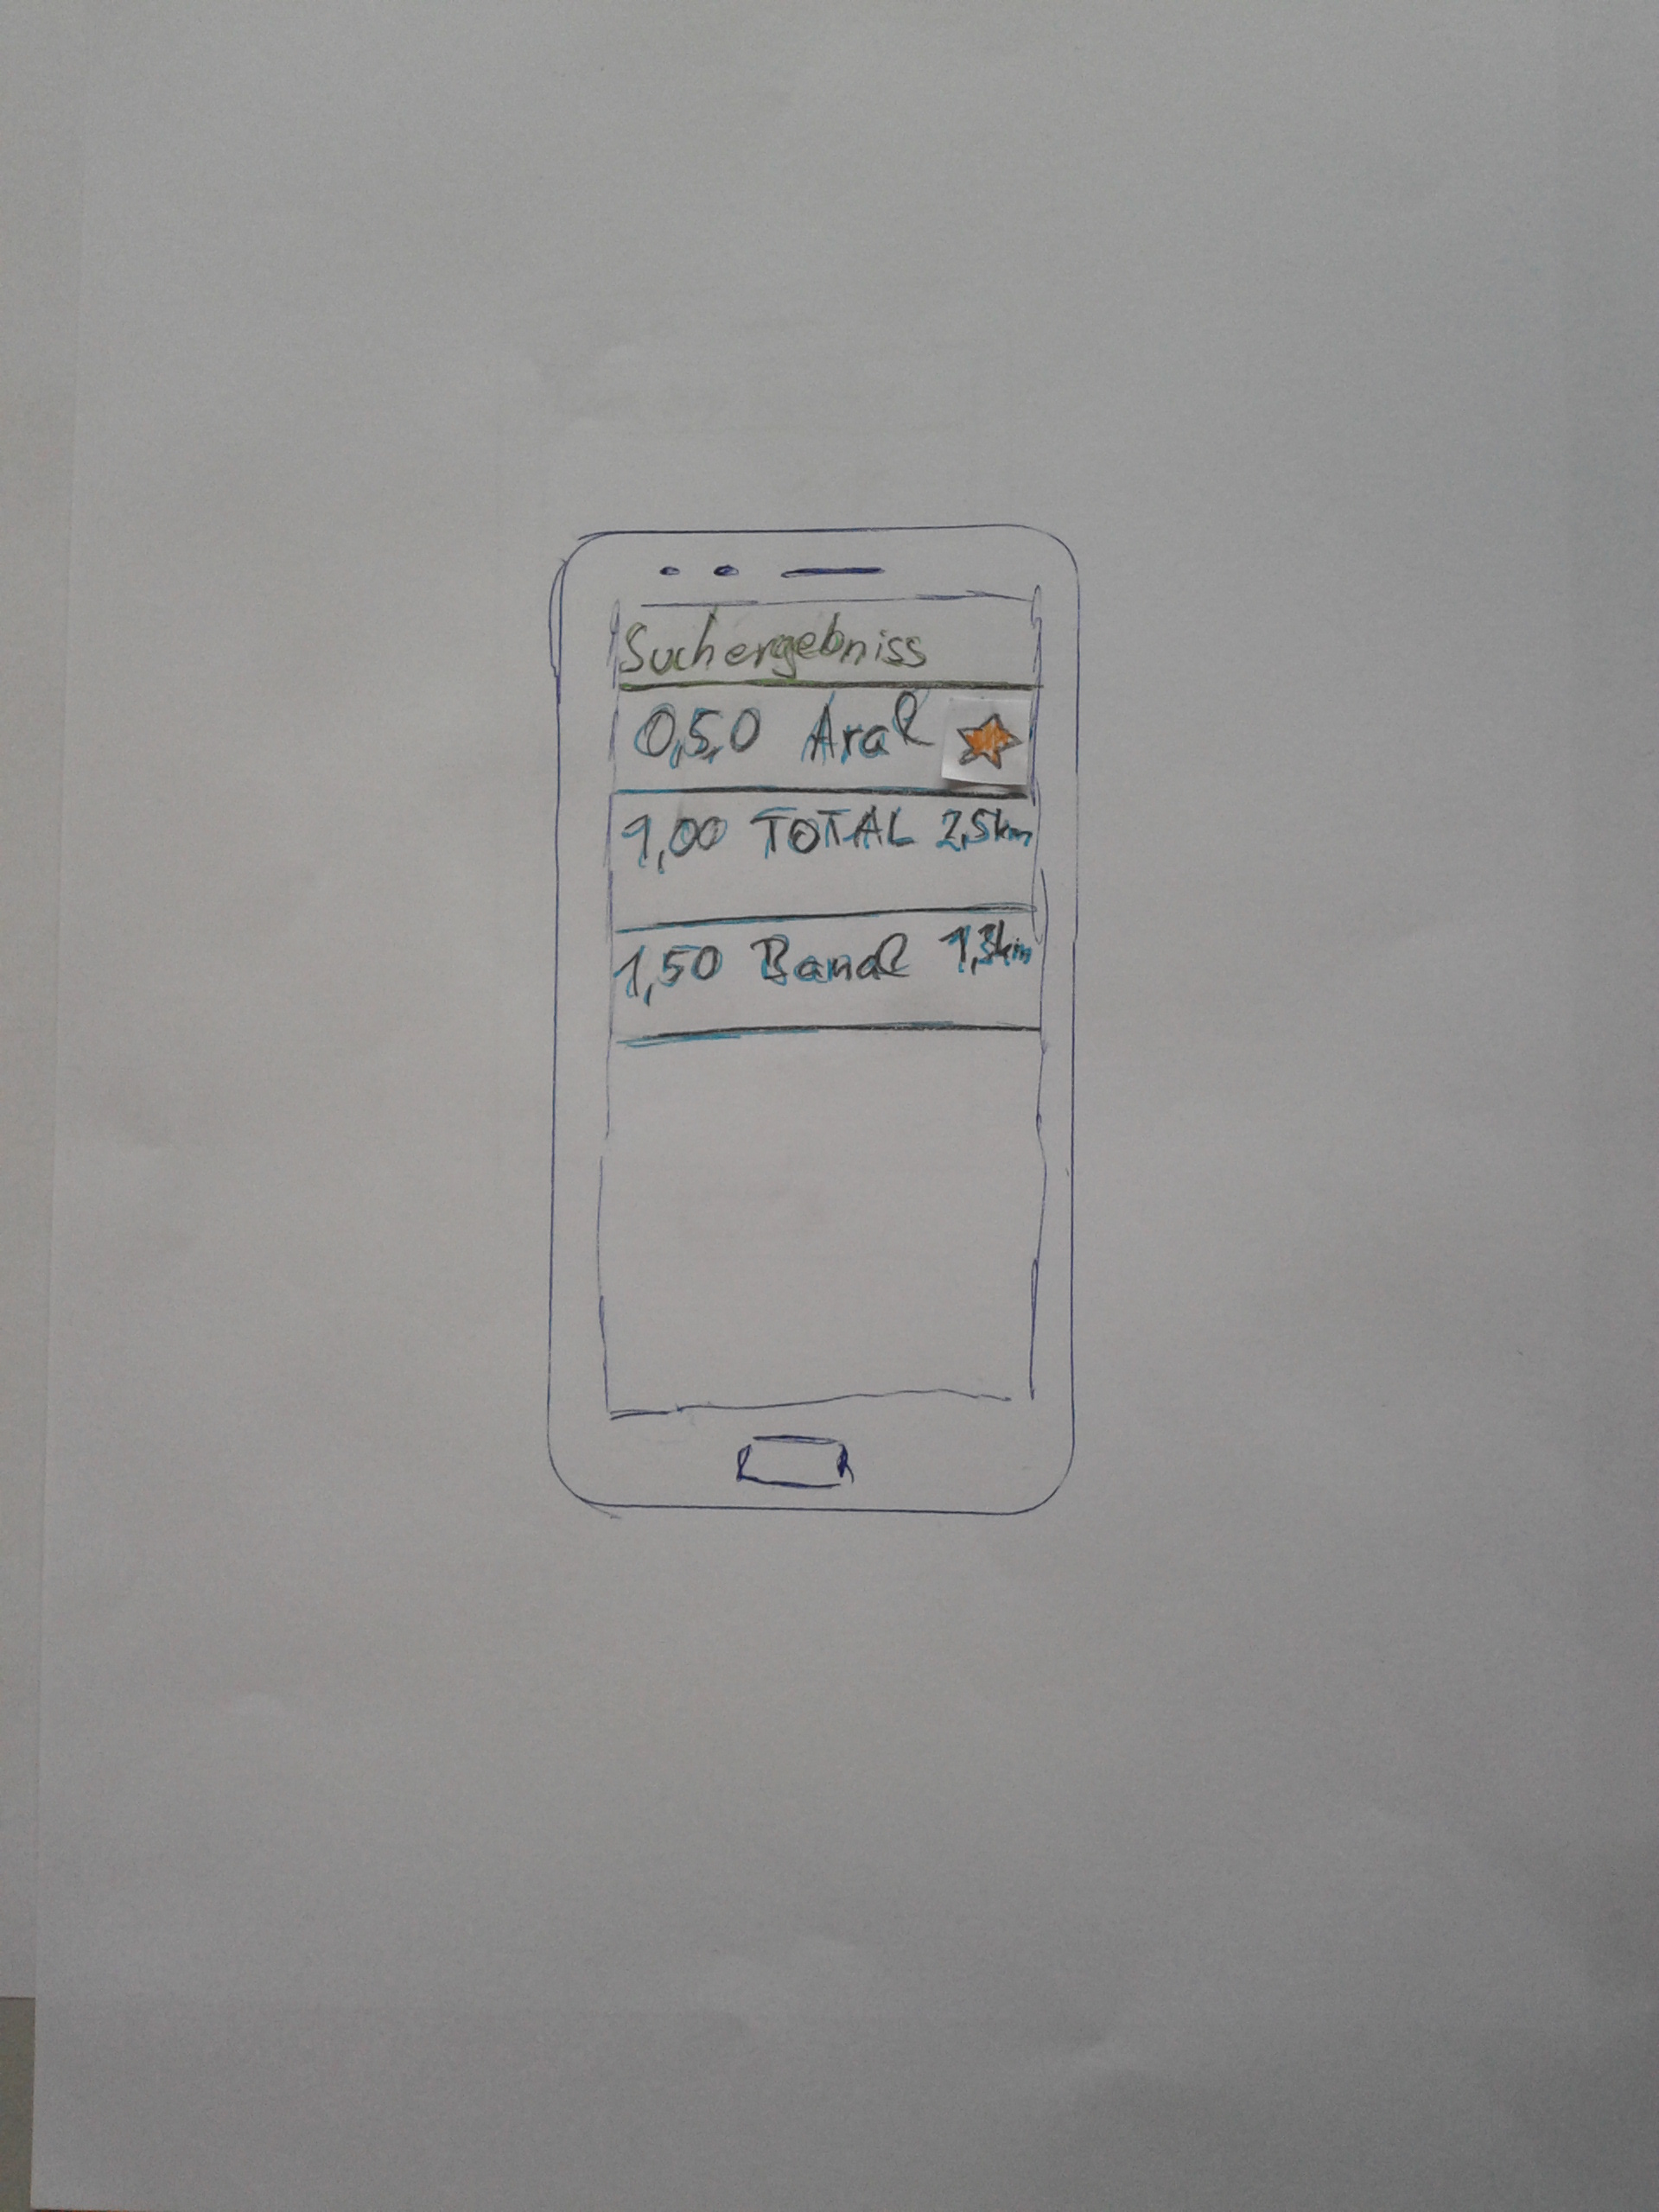 Suchergebniss
0,50 Aral
1,00 TOTAL 2,5km
1,50 Banal 1,3km